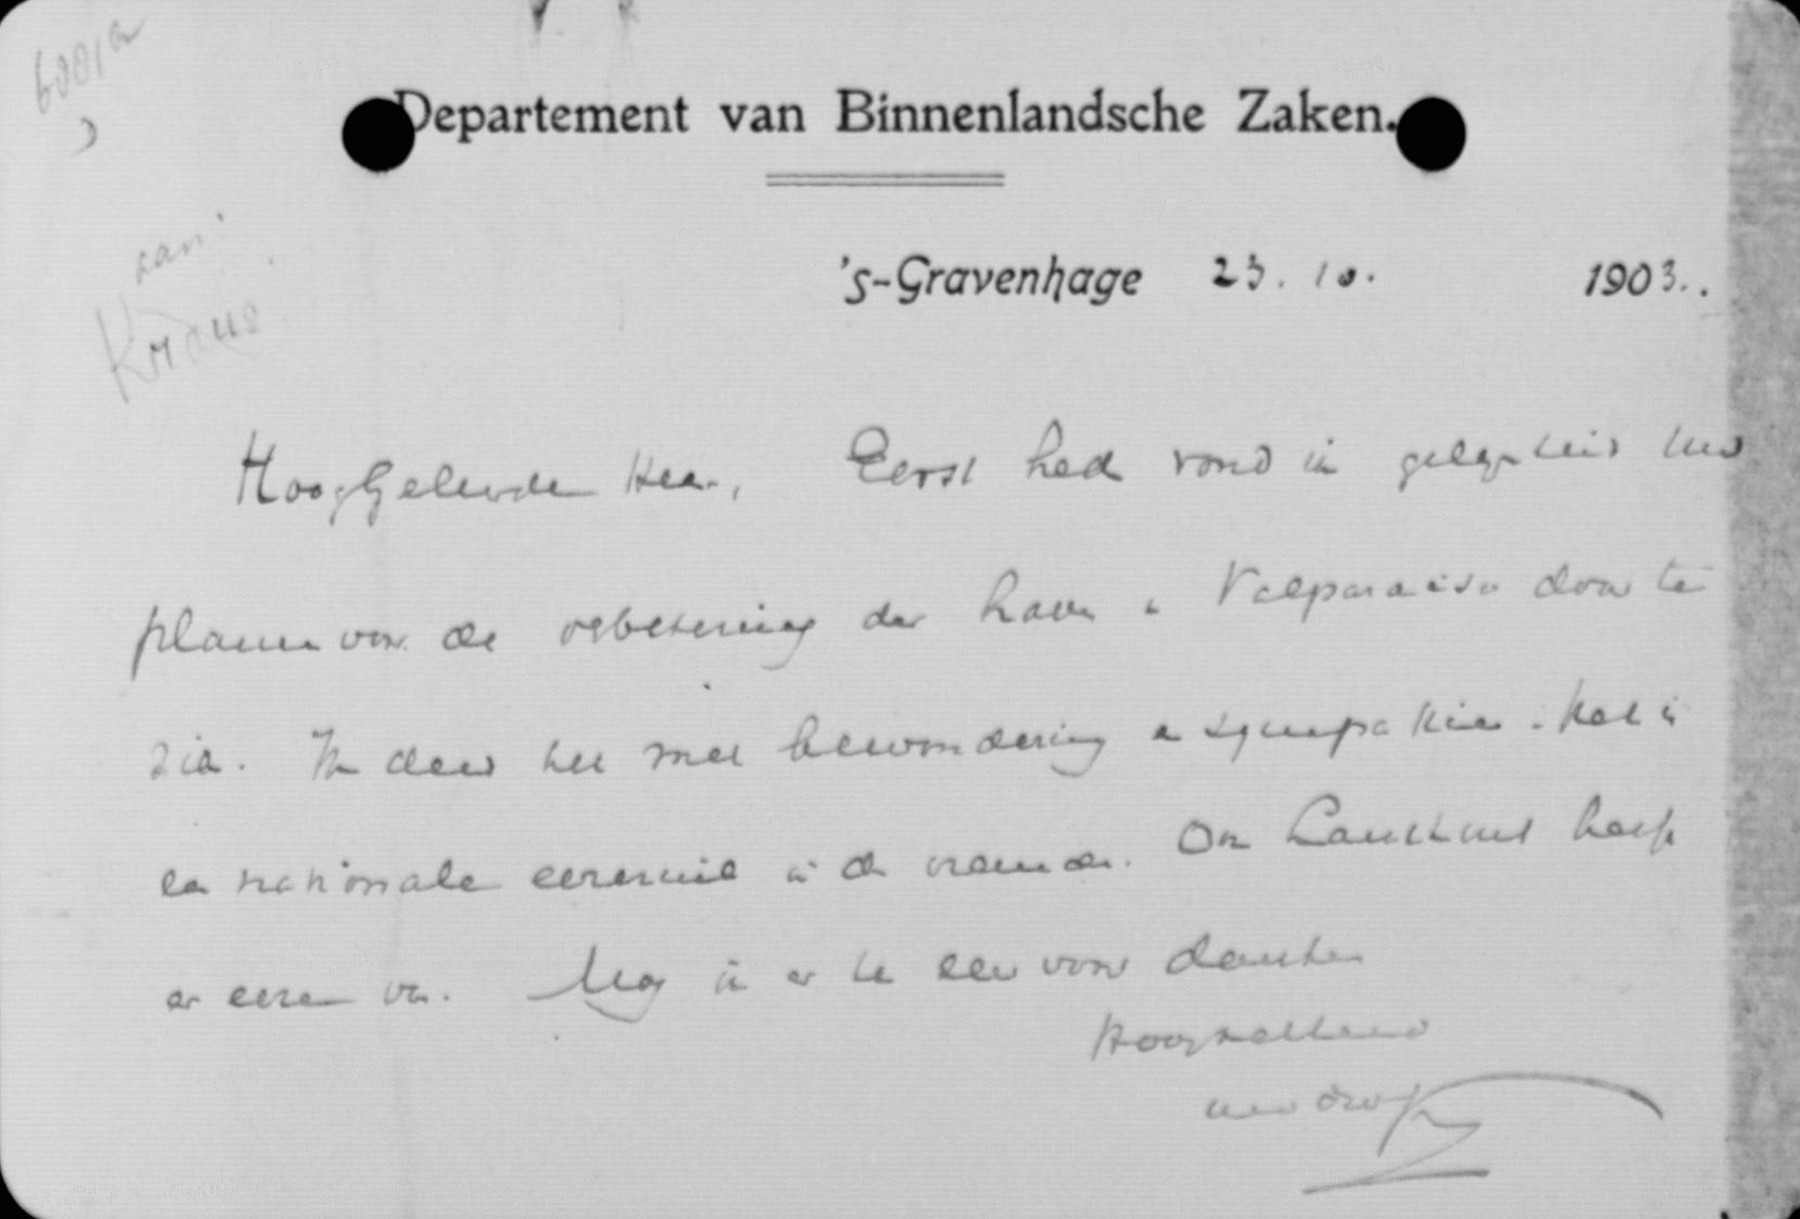 6001a
Departement van Binnenlandsche Zaken.
's-Gravenhage 23. 10. 1903.
aan:
Kraus
HoogGeleerde Heer, Eerst heden vond ik gelegenheid uw
plannen voor de verbetering der haven in Valparaiso door te
zien. Ik deed het met bewondering en sympathie. Het is
een nationale eerezuil in den vreemde. Ons Landhuis heeft
er eere van. Mag ik er U zeer voor danken
Hoogachtend
uw dw